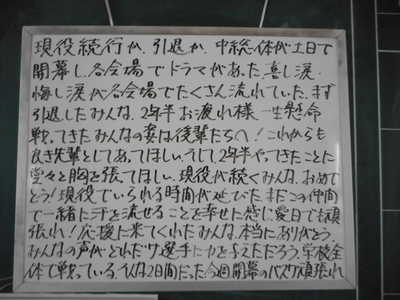 現役続行か、引退か、中総体が土日で
開幕し、各会場でドラマがあった。喜し涙、
悔し涙が各会場でたくさん流れていた。まず
引退したみんな、2年半お渡れ様。一生懸命
戦ってきたみんなの姿は後輩たちへ!これからも
良き先輩としてあってほしい。そして、2年半やってきたことに
堂々と胸を張ってほしい。現役が続くみんな、おめで
とう!現役でいられる時間が延びた。まだこの仲間
で一緒に汗を流せることを幸せに感じ、愛日でも頑
張れ!応援に来てくれたみんな、本当にありがとう。
みんなの声がどれだけ選手に力を与えただろう。学校全
体で戦っている そんな2日間だった。今週開幕のバスケ頑張れ